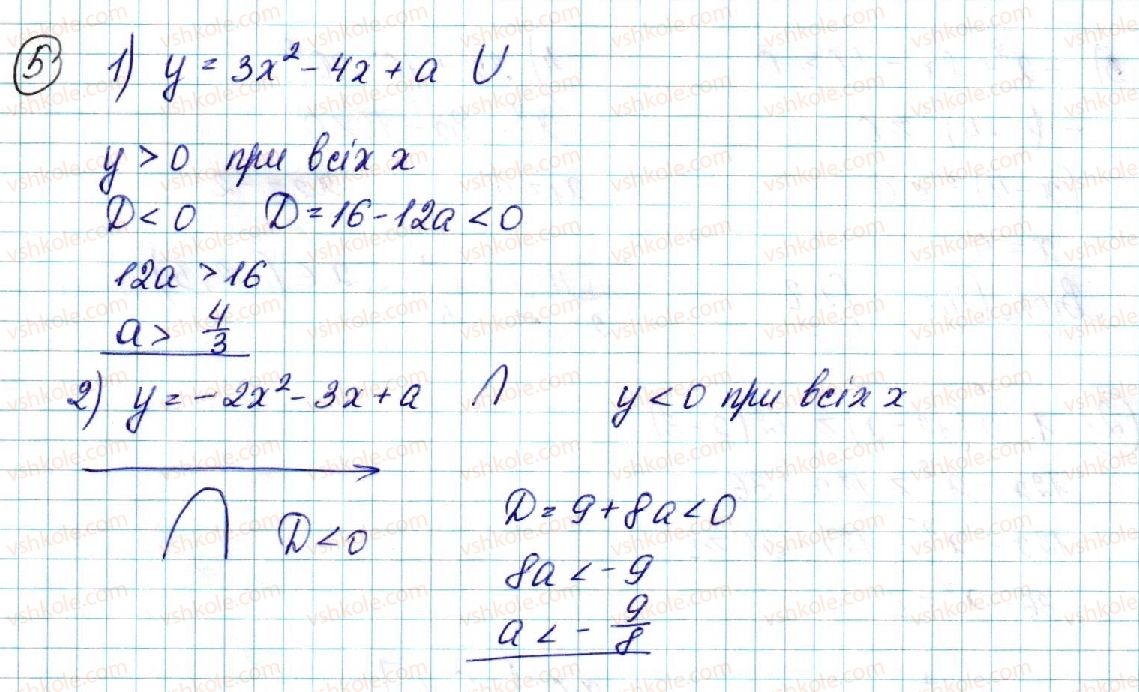 5 1) y = 3x² - 4x + a ∪
y > 0 при всіх x
D < 0 D = 16 - 12a < 0
12a > 16
a > 4/3
2) y = -2x² - 3x + a ∩ y < 0 при всіх x
D = 9 + 8a < 0
D < 0
8a < -9
a < - 9/8
vshkole.com